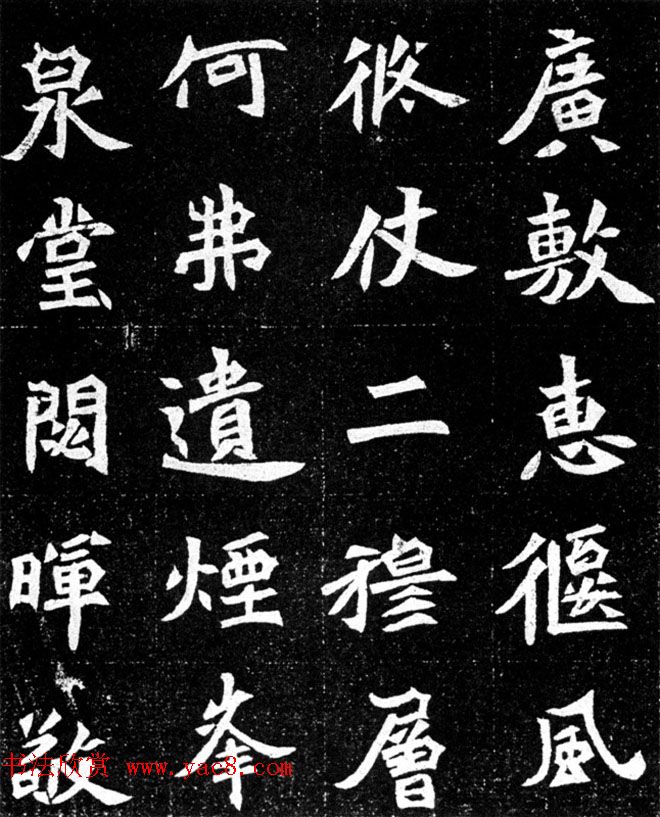 廣敷惠偃風
攸仗二穆層
何弗遺煙峯
泉堂閟暉敬
书法欣赏 www.yac8.com